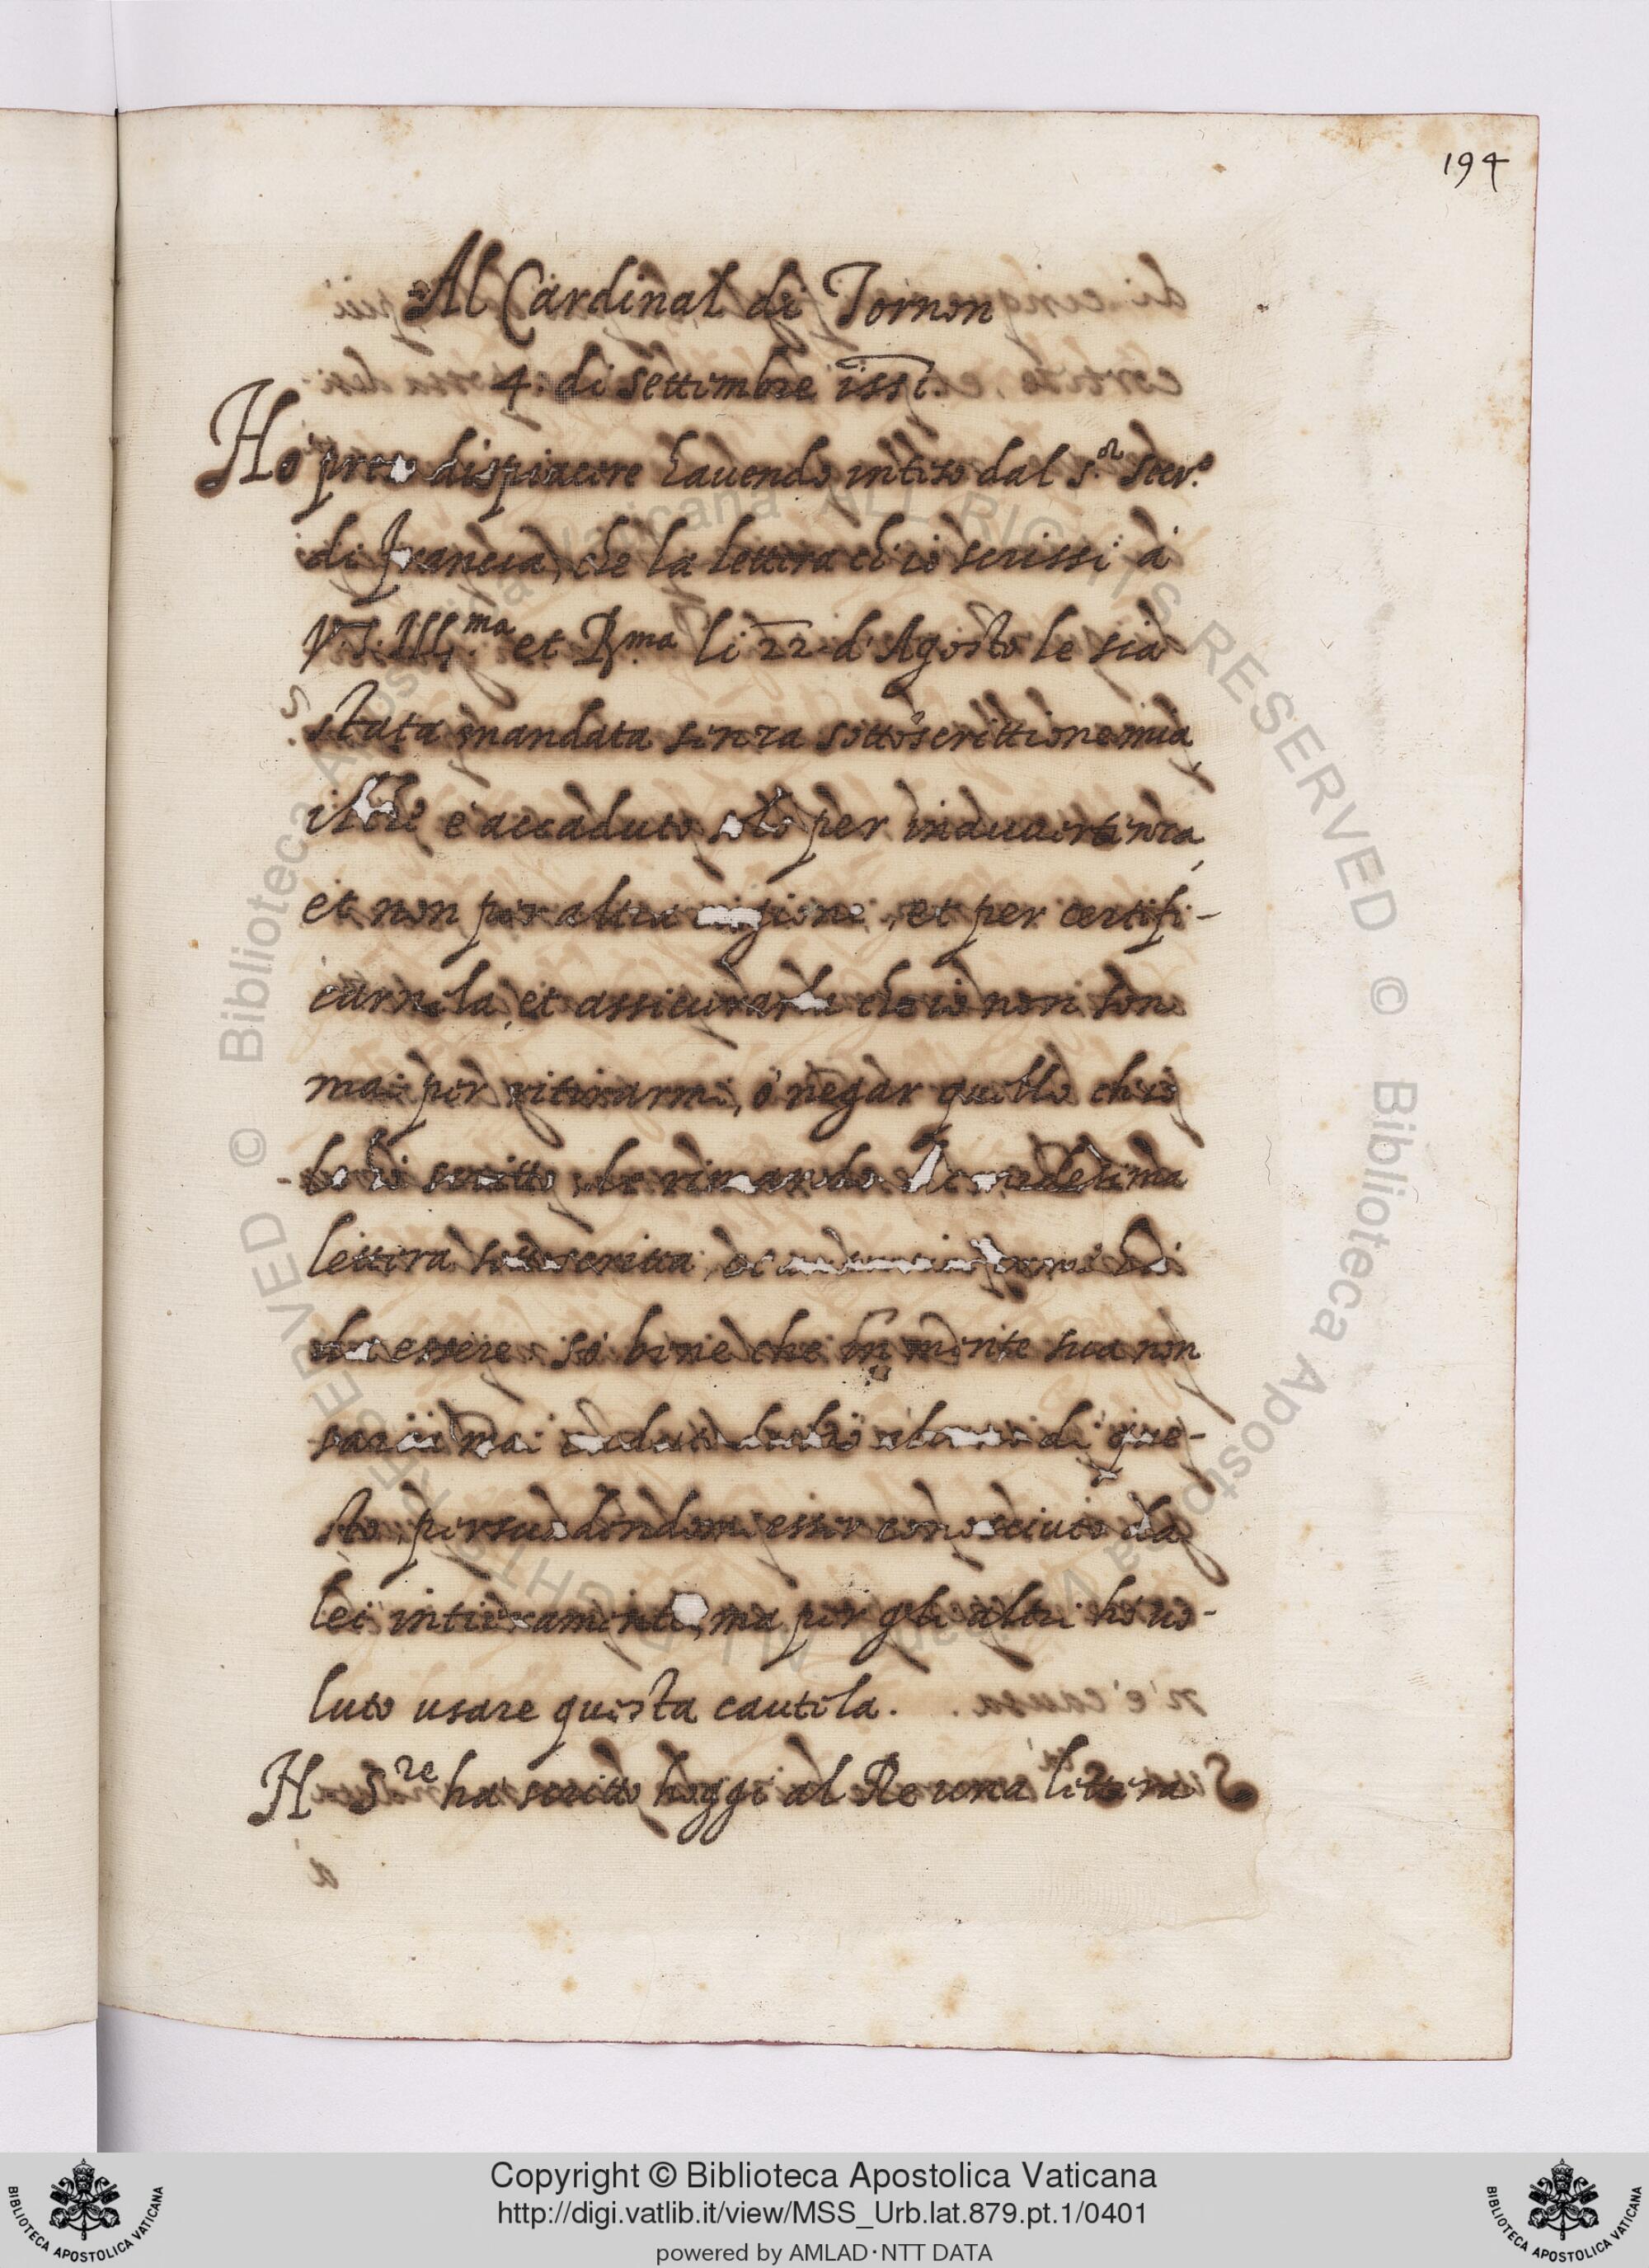 194
Al Cardinal di Tornon
4. di settimbre 1551.
Hò preso dispiacere havendo inteso dal s.or
di Francia, che la lettera ch'io scrissi à
V.S. Ill.ma et R.ma li 22 d'Agosto le sia
stata mandata senza sottoscrittione mia,
il che è accaduto solo per inavvertenza,
et non per altra cagione, et per certifi-
carnela, et assicurarla che io non son
mai per ritirarmi, ò negar quello ch'io
ho scritto, le rimando la medesima
lettera sottoscritta
essere, so bene che in mente sua non
mai di que-
sto, persuadendomi esser conosciuto da
lei intieramente, ma per gli altri hò uo-
luto usare questa cautela.
N S.re ha scritto hoggi al Re una lettera
© Biblioteca Apostolica Vaticana ALL RIGHTS RESERVED © Biblioteca Apostolica Vaticana ALL RIGHTS RESERVED
Copyright © Biblioteca Apostolica Vaticana
http://digi.vatlib.it/view/MSS_Urb.lat.879.pt.1/0401
powered by AMLAD·NTT DATA
BIBLIOTECA APOSTOLICA VATICANA
BIBLIOTECA APOSTOLICA VATICANA